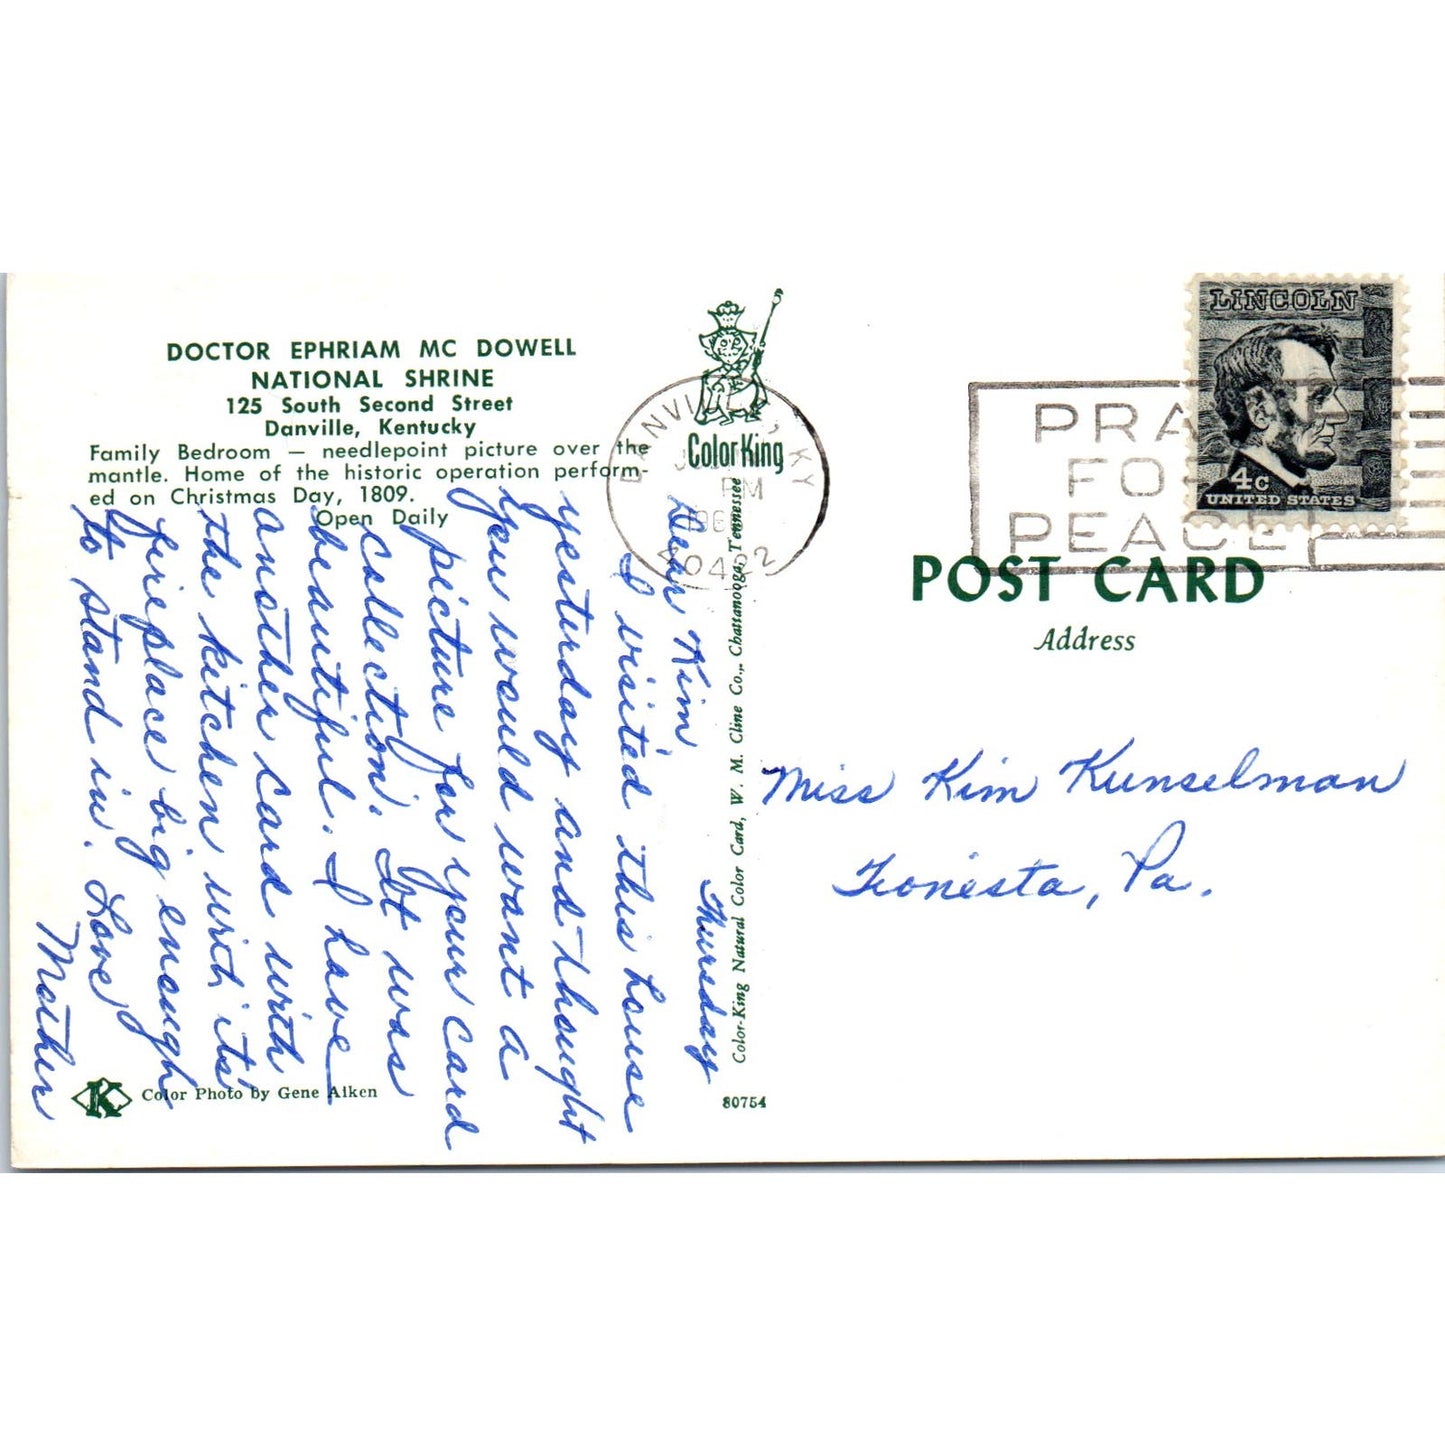 DOCTOR EPHRIAM MC DOWELL
NATIONAL SHRINE
125 South Second Street
Danville, Kentucky
Family Bedroom — needlepoint picture over the
mantle. Home of the historic operation perform-
ed on Christmas Day, 1809.
Open Daily
Thursday
Dear Kim
I visited this house
yesterday and thought
you would want a
picture for your card
collection. It was
beautiful. I have
another card with
the kitchen with its
fireplace big enough
to stand in. Love,
Mother
Color Photo by Gene Aiken
K
ColorKing
Color-King Natural Color Card, W. M. Cline Co., Chattanooga, Tennessee
80754
DANVILLE, KY
PM
40422
PRAY
FOR
PEACE
LINCOLN
4c
UNITED STATES
POST CARD
Address
Miss Kim Kunselman
Tionesta, Pa.